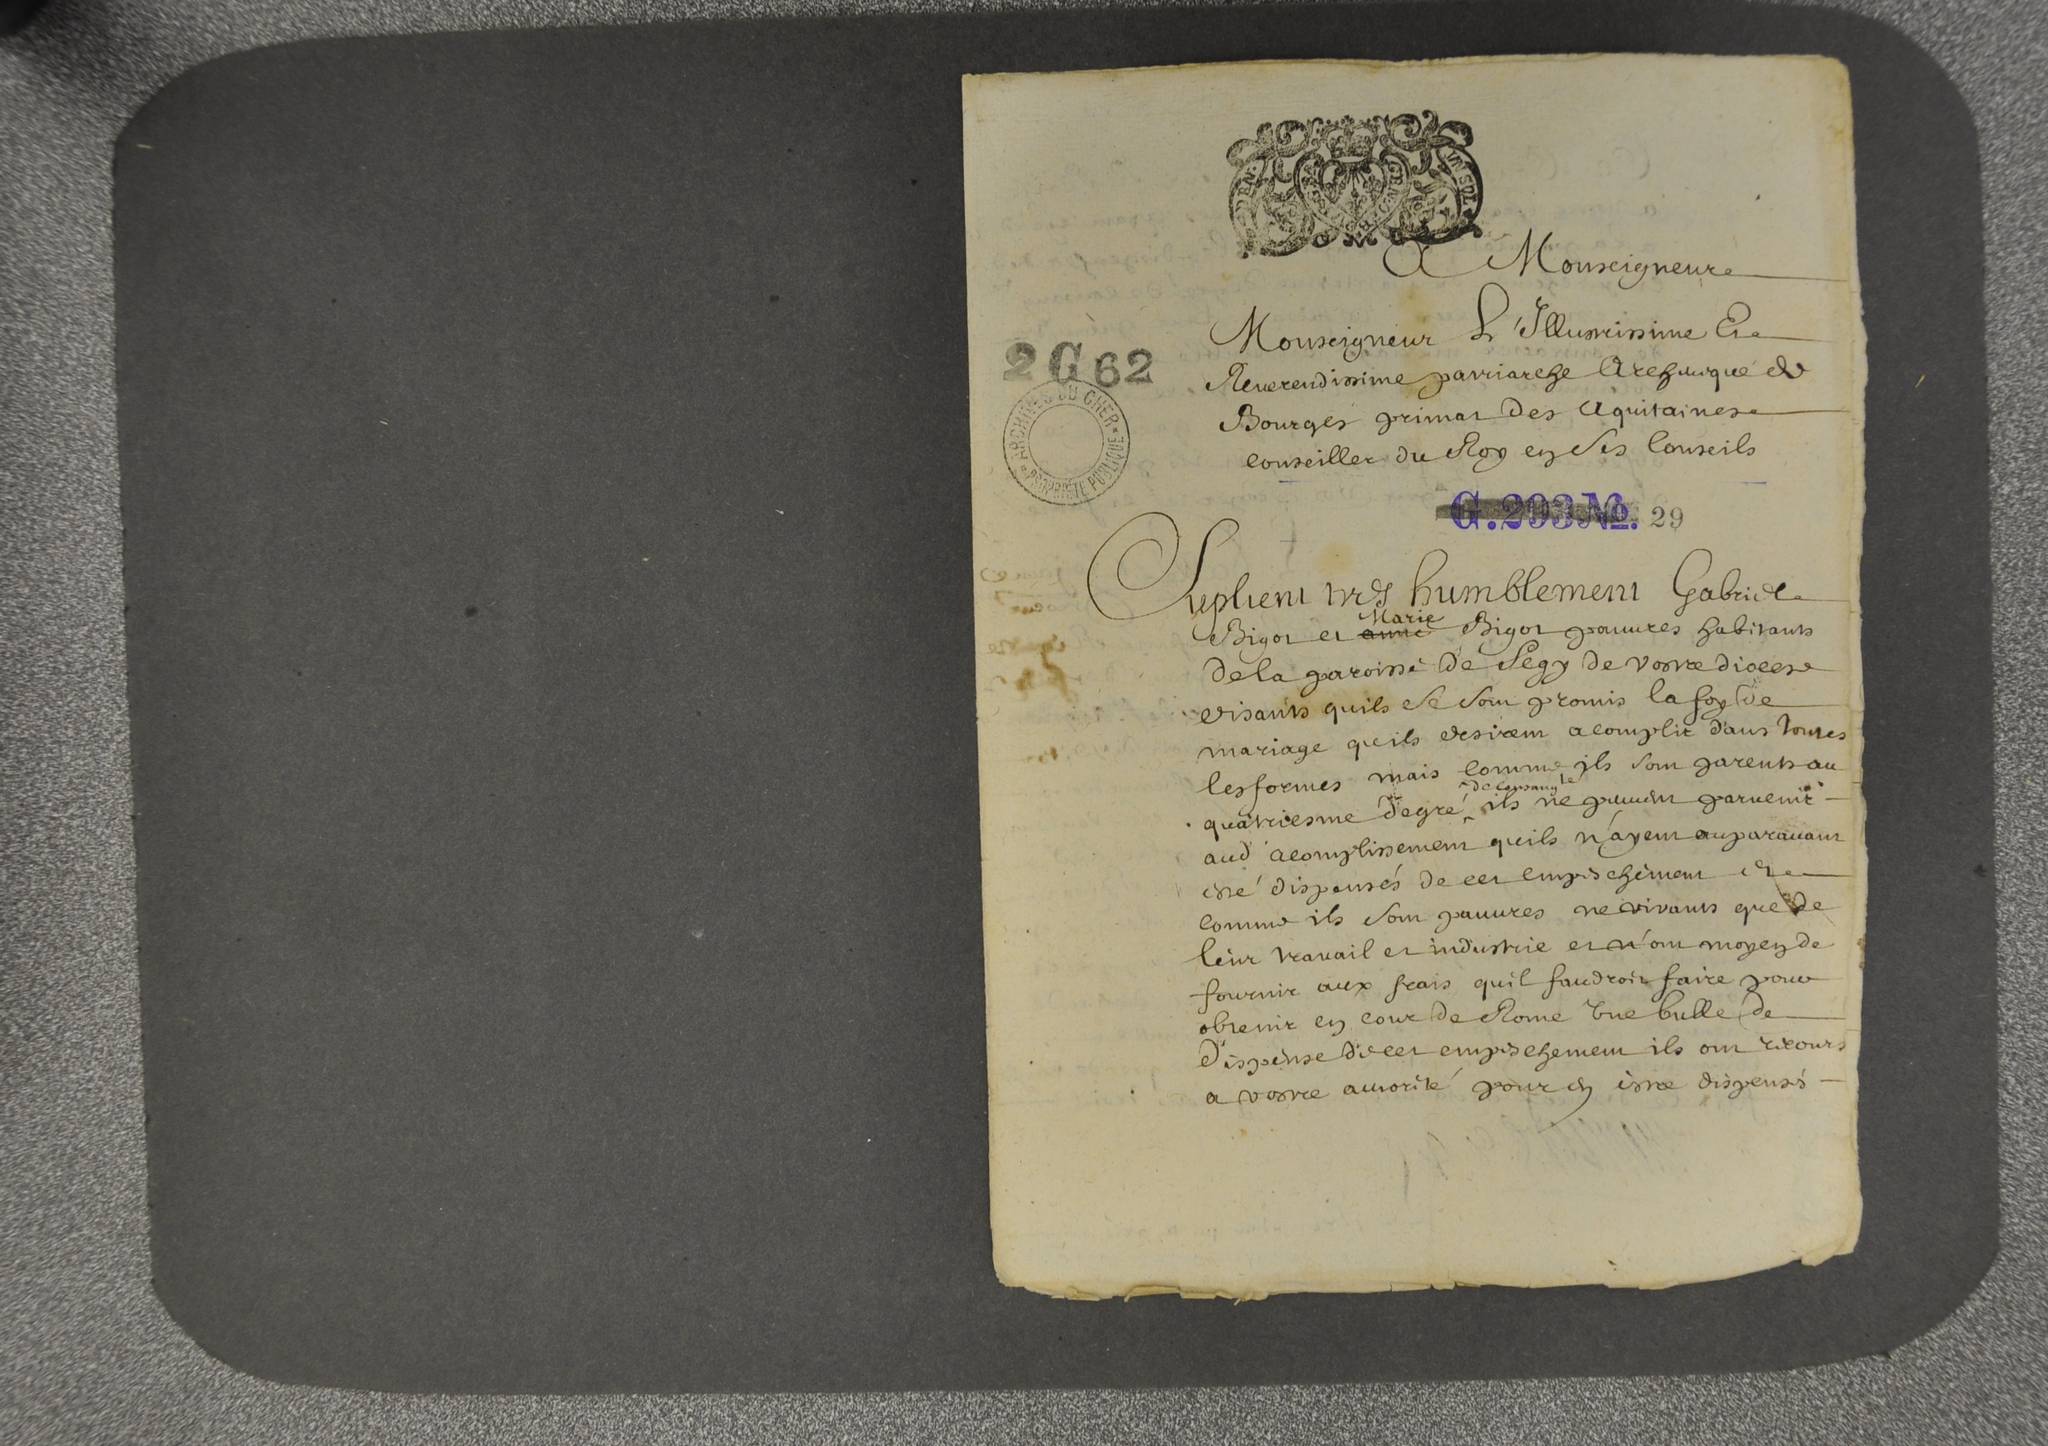 A Monseigneur
Monseigneur L'Illustrissime Et
Reverendissime patriarche Archeuéque de
Bourges primat Des Aquitaines
conseiller du Roy en Ses Conseils
2 G 62
ARCHIVES DU CHER
PROPRIÉTÉ PUBLIQUE
G. 293 No. 29
Suplient tres humblement Gabriel
Marie
Bigot et anne Bigot pauures habitants
De la paroisse de Segy de vostre diocese
disants quils se sont promis la foy de
mariage quils desirent acomplir dans toutes
les formes mais comme ils sont parents au
de consang té
quatriesme degré ils ne peuuent paruenir
aud acomplissement quils n'ayent auparauant
esté dispensés de cet empeschement et
comme ils sont pauures ne vivants que de
leur trauail et industrie et n'ont moyen de
fournir aux frais quil faudroit faire pour
obtenir en cour de Rome vne bulle de
dispense de cet empeschement ils ont recours
a vostre autorité pour en estre dispensés